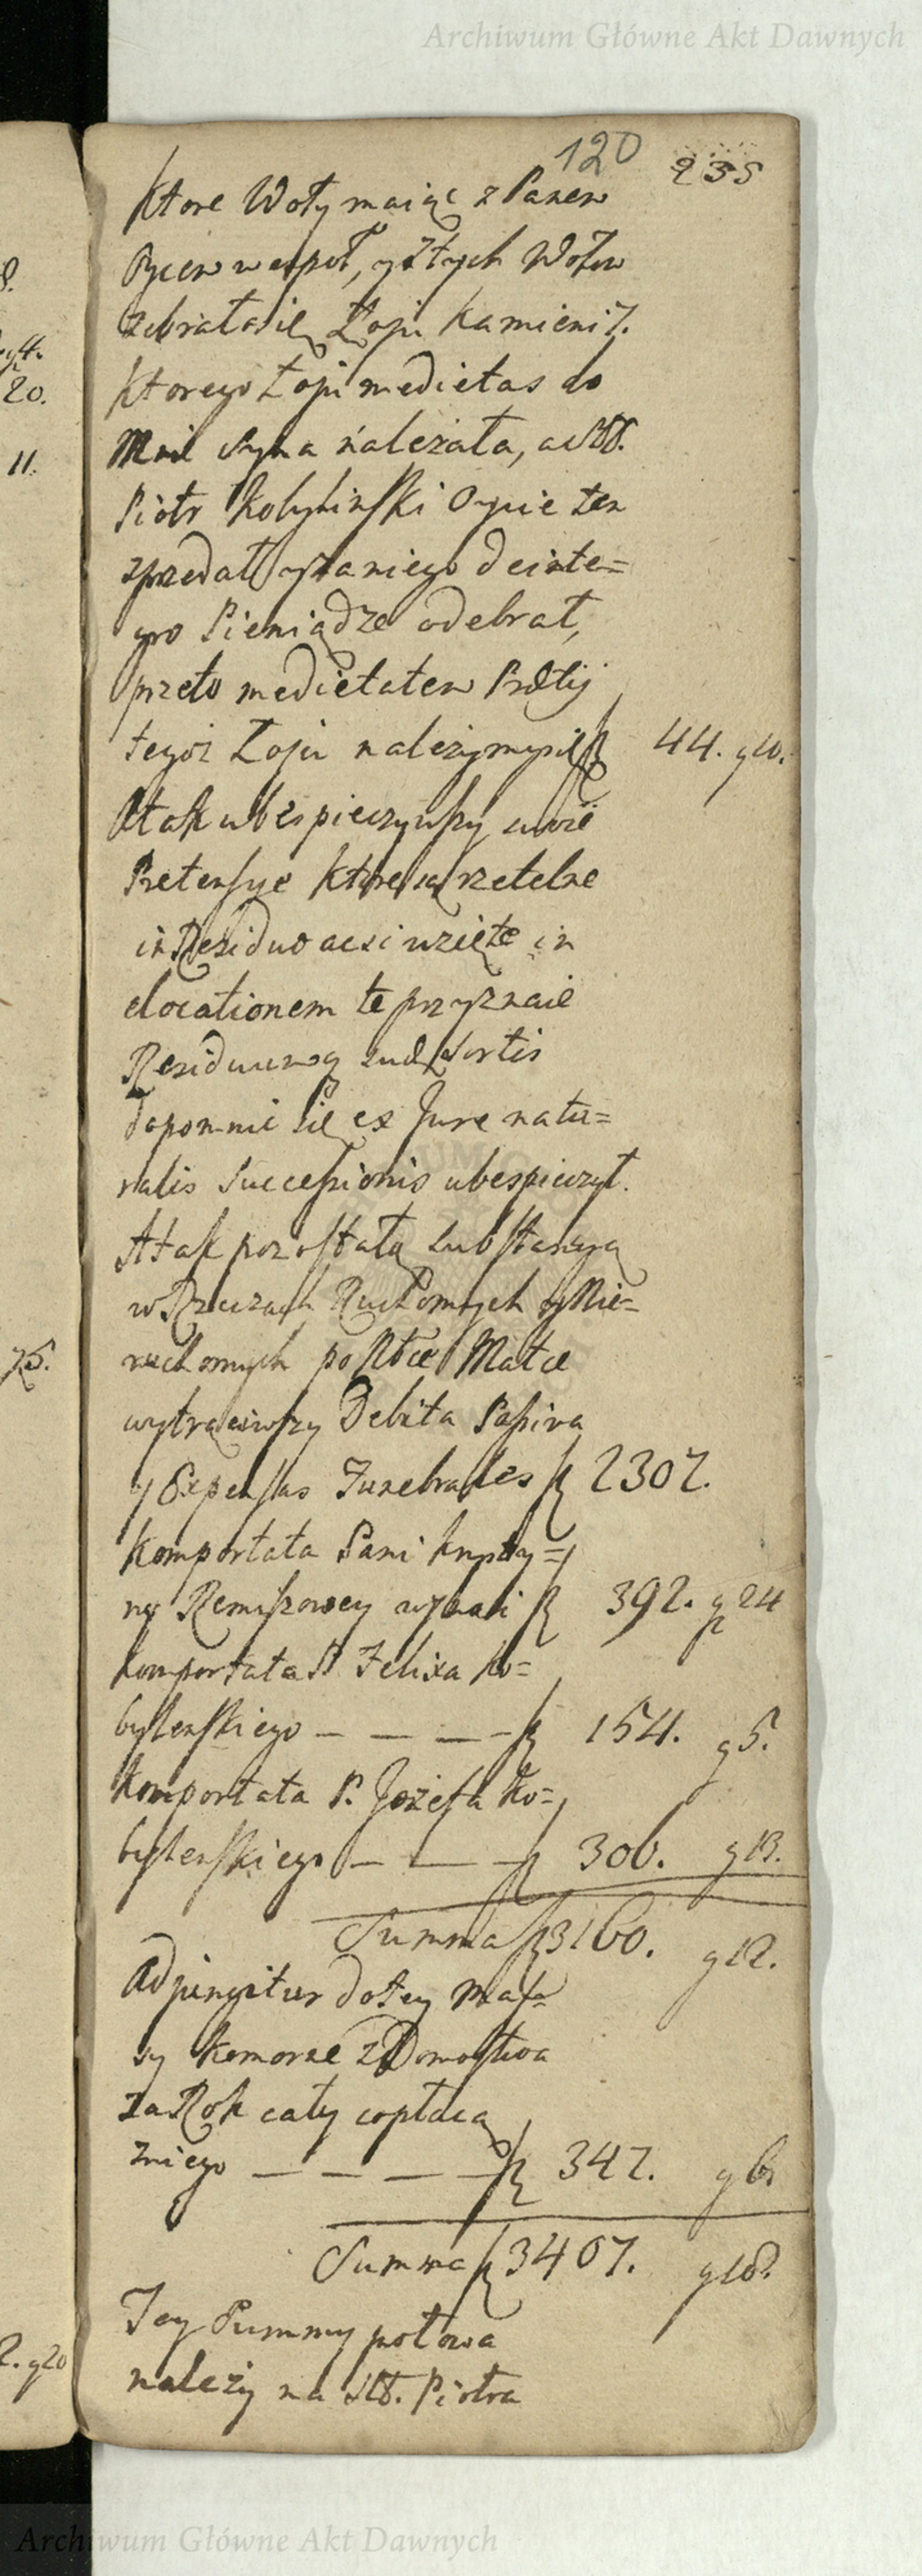 Archiwum Główne Akt Dawnych
120 235
8.
20.
11.
75.
2. g20
Ktore Woły maiąc z Panem
Oycem wespoł, y z tych Wołow
zebrało się Łoju kamieni 7.
Ktorego Łoju medietas do
Mnie Syna należała, a Sttt.
Piotr Kobyliński Oyciec ten
zprzedał y za niego de inte=
gro Pieniądze odebrał,
przeto medietatem
tegoż Łoju należy mu się f 44. g10.
A tak ubespieczywszy swoie
Pretensye ktore są rzetelne
in Residuo acsi wzięte in
elocationem te przyznaie
Residuum Sortis
dopomnie się ex Jure natu=
ralis Successionis ubespieczył.
A tak pozostałą Substancyą
w Rzeczach Ruchomych y Nie=
ruchomych po Matce
wytrąciwszy Debita Passiva
y Expensas Funebrales f 2307.
Komportata Pani Krysty=
ny Remiszowey wynosi f 392. g 24
Komportata P. Felixa Ko=
bylenskiego — — — — f 154. g5.
Komportata P. Jozefa Ko=
bylenskiego — — — f 306. g13.
Summa f 3160. g12.
Adjungitur do tey Mas=
sy komorne z Domostwa
za Rok cały co płacą
zniego — — — — f 347. g6.
Summa f 3407. g18.
Tey Summy połowa
należy na Stt. Piotra
Archiwum Główne Akt Dawnych